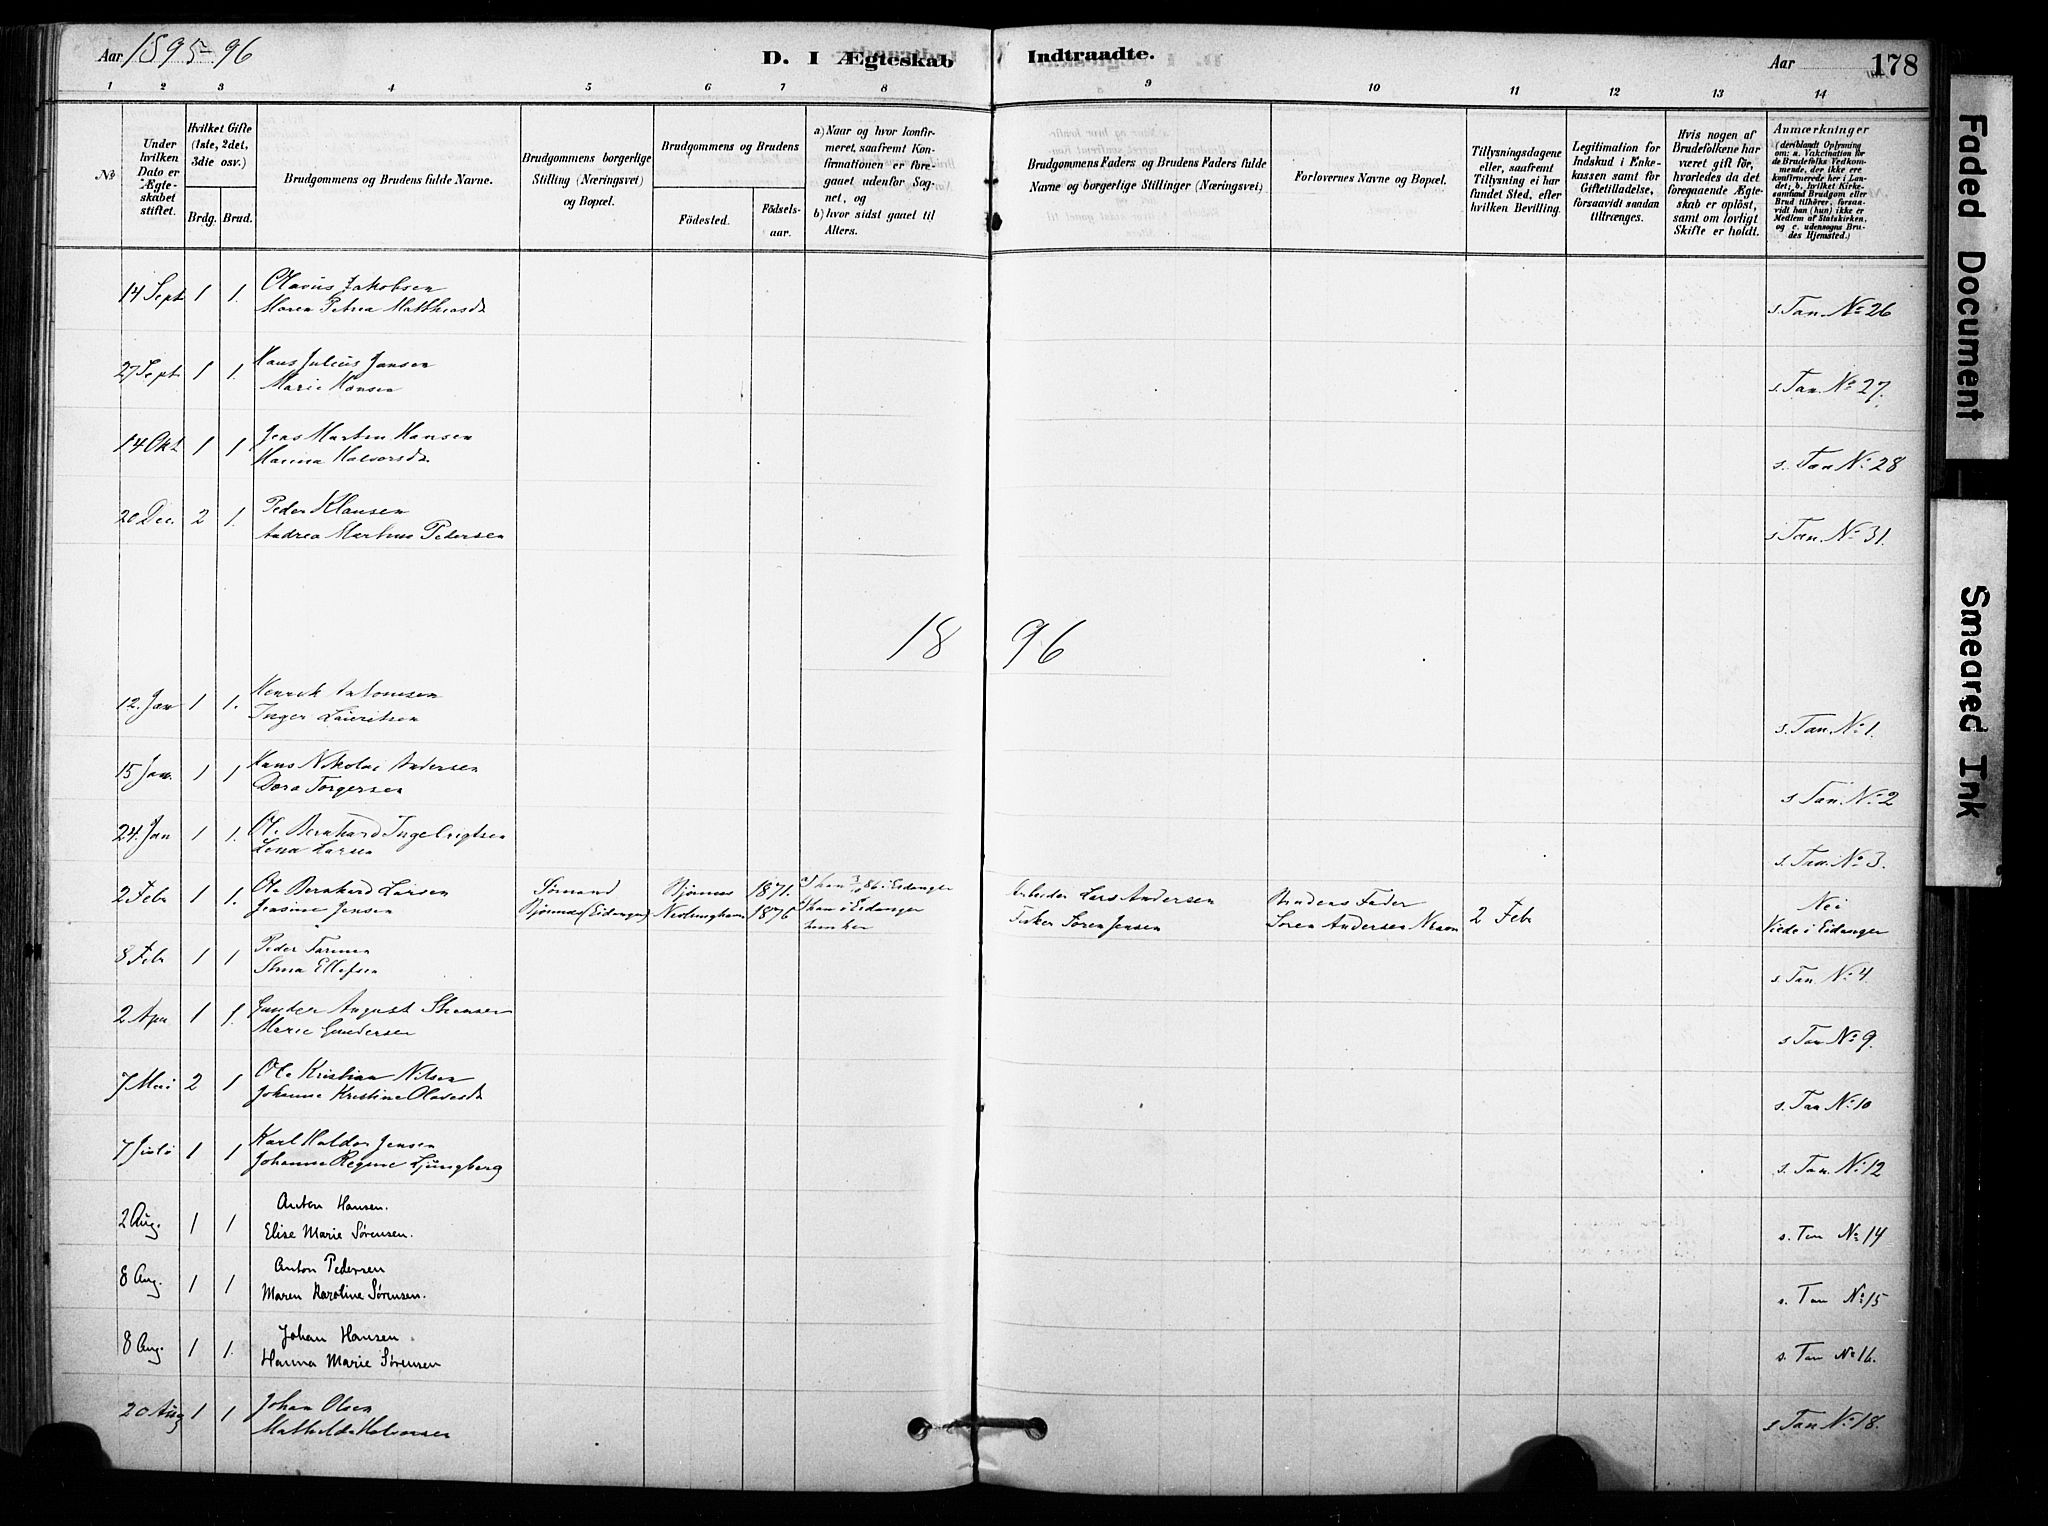 Aar 1895-96
D. I Ægteskab Indtraadte.
Aar 178
1 2 3 4 5 6 7 8 9 10 11 12 13 14
No
Under hvilken Dato er Ægteskabet stiftet.
Hvilket Gifte (1ste, 2det, 3die osv.)
Brdg. Brud.
Brudgommens og Brudens fulde Navne.
Brudgommens borgerlige Stilling (Næringsvei) og Bopæl.
Brudgommens og Brudens
Födested.
Födselsaar.
a) Naar og hvor konfirmeret, saafremt Konfirmationen er foregaaet udenfor Sognet, og
b) hvor sidst gaaet til Alters.
Brudgommens Faders og Brudens Faders fulde Navne og borgerlige Stillinger (Næringsvei)
Forlovernes Navne og Bopæl.
Tillysningsdagene eller, saafremt Tillysning ei har fundet Sted, efter hvilken Bevilling.
Legitimation for Indskud i Enkekassen samt for Giftetilladelse, forsaavidt saadan tiltrænges.
Hvis nogen af Brudefolkene har været gift för, hvorledes da det foregaaende Ægteskab er oplöst, samt om lovligt Skifte er holdt.
Anmærkninger
(deriblandt Oplysning om: a. Vakcination for de Brudefolks Vedkommende, der ikke ere konfirmerede her i Landet; b. hvilket Kirkesamfund Brudgom eller Brud tilhörer, forsaavidt han (hun) ikke er Medlem af Statskirken, og c. udensogns Brudes Hjemsted.)
14 Sept 1 1. Olavus Jakobsen
Maren Petrea Matthiasdt s. Tan. No 26
27 Sept 1 1. Hans Julius Jansen
Marie Hansen s. Tan. No 27.
14 Okt 1 1. Jens Martin Hansen
Hanna Halvorsdt. s. Tan No 28
20 Dec. 2 1. Peder Klausen
Andrea Martine Pedersen s Tan. No 31.
1896
12. Jan 1 1. Henrik Antonisen
Inger Lauritsen s. Tan. No 1.
15 Jan. 1 1 Hans Nikolai Andersen
Dora Torgersen s Tan. No 2
24. Jan 1 1. Ole Bernhard Ingebrigtsen
Lena Larsen s. Tan. No 3.
2 Feb 1 1. Ole Bernhard Larsen Sømand Bjørnæs 1871. Arbeider Lars Andersen Brudens Fader Nei
Jensine Jensen (Eidanger) 1876 Fisker Søren Jensen Søren Andersen 2 Feb Viede i Eidanger
8 Feb 1 1 Peder
Stina Ellefsen s Tan No 4.
2 Apr 1 1. Gunder August
Marie Gundersen s Tan No 9.
7 Mai 2 1 Ole Kristian Nilsen
Johanne Kristine Olavesdt s. Tan No 10
7 Juli 1 1 Karl Haldor Jensen
Johanne Regine Ljungberg s. Tan. No 12
2 Aug. 1 1 Anton Hansen.
Elise Marie Sørensen. s. Tan No 14
8 Aug. 1 1 Anton Pedersen
Maren Karoline Sørensen. s. Tan No 15
8 Aug. 1 1. Johan Hansen.
Hanna Marie Sørensen s. Tan No 16.
20 Aug 1 1 Johan Olsen
Mathilde Halvorsen s Tan No 18.
Faded Document
Smeared Ink